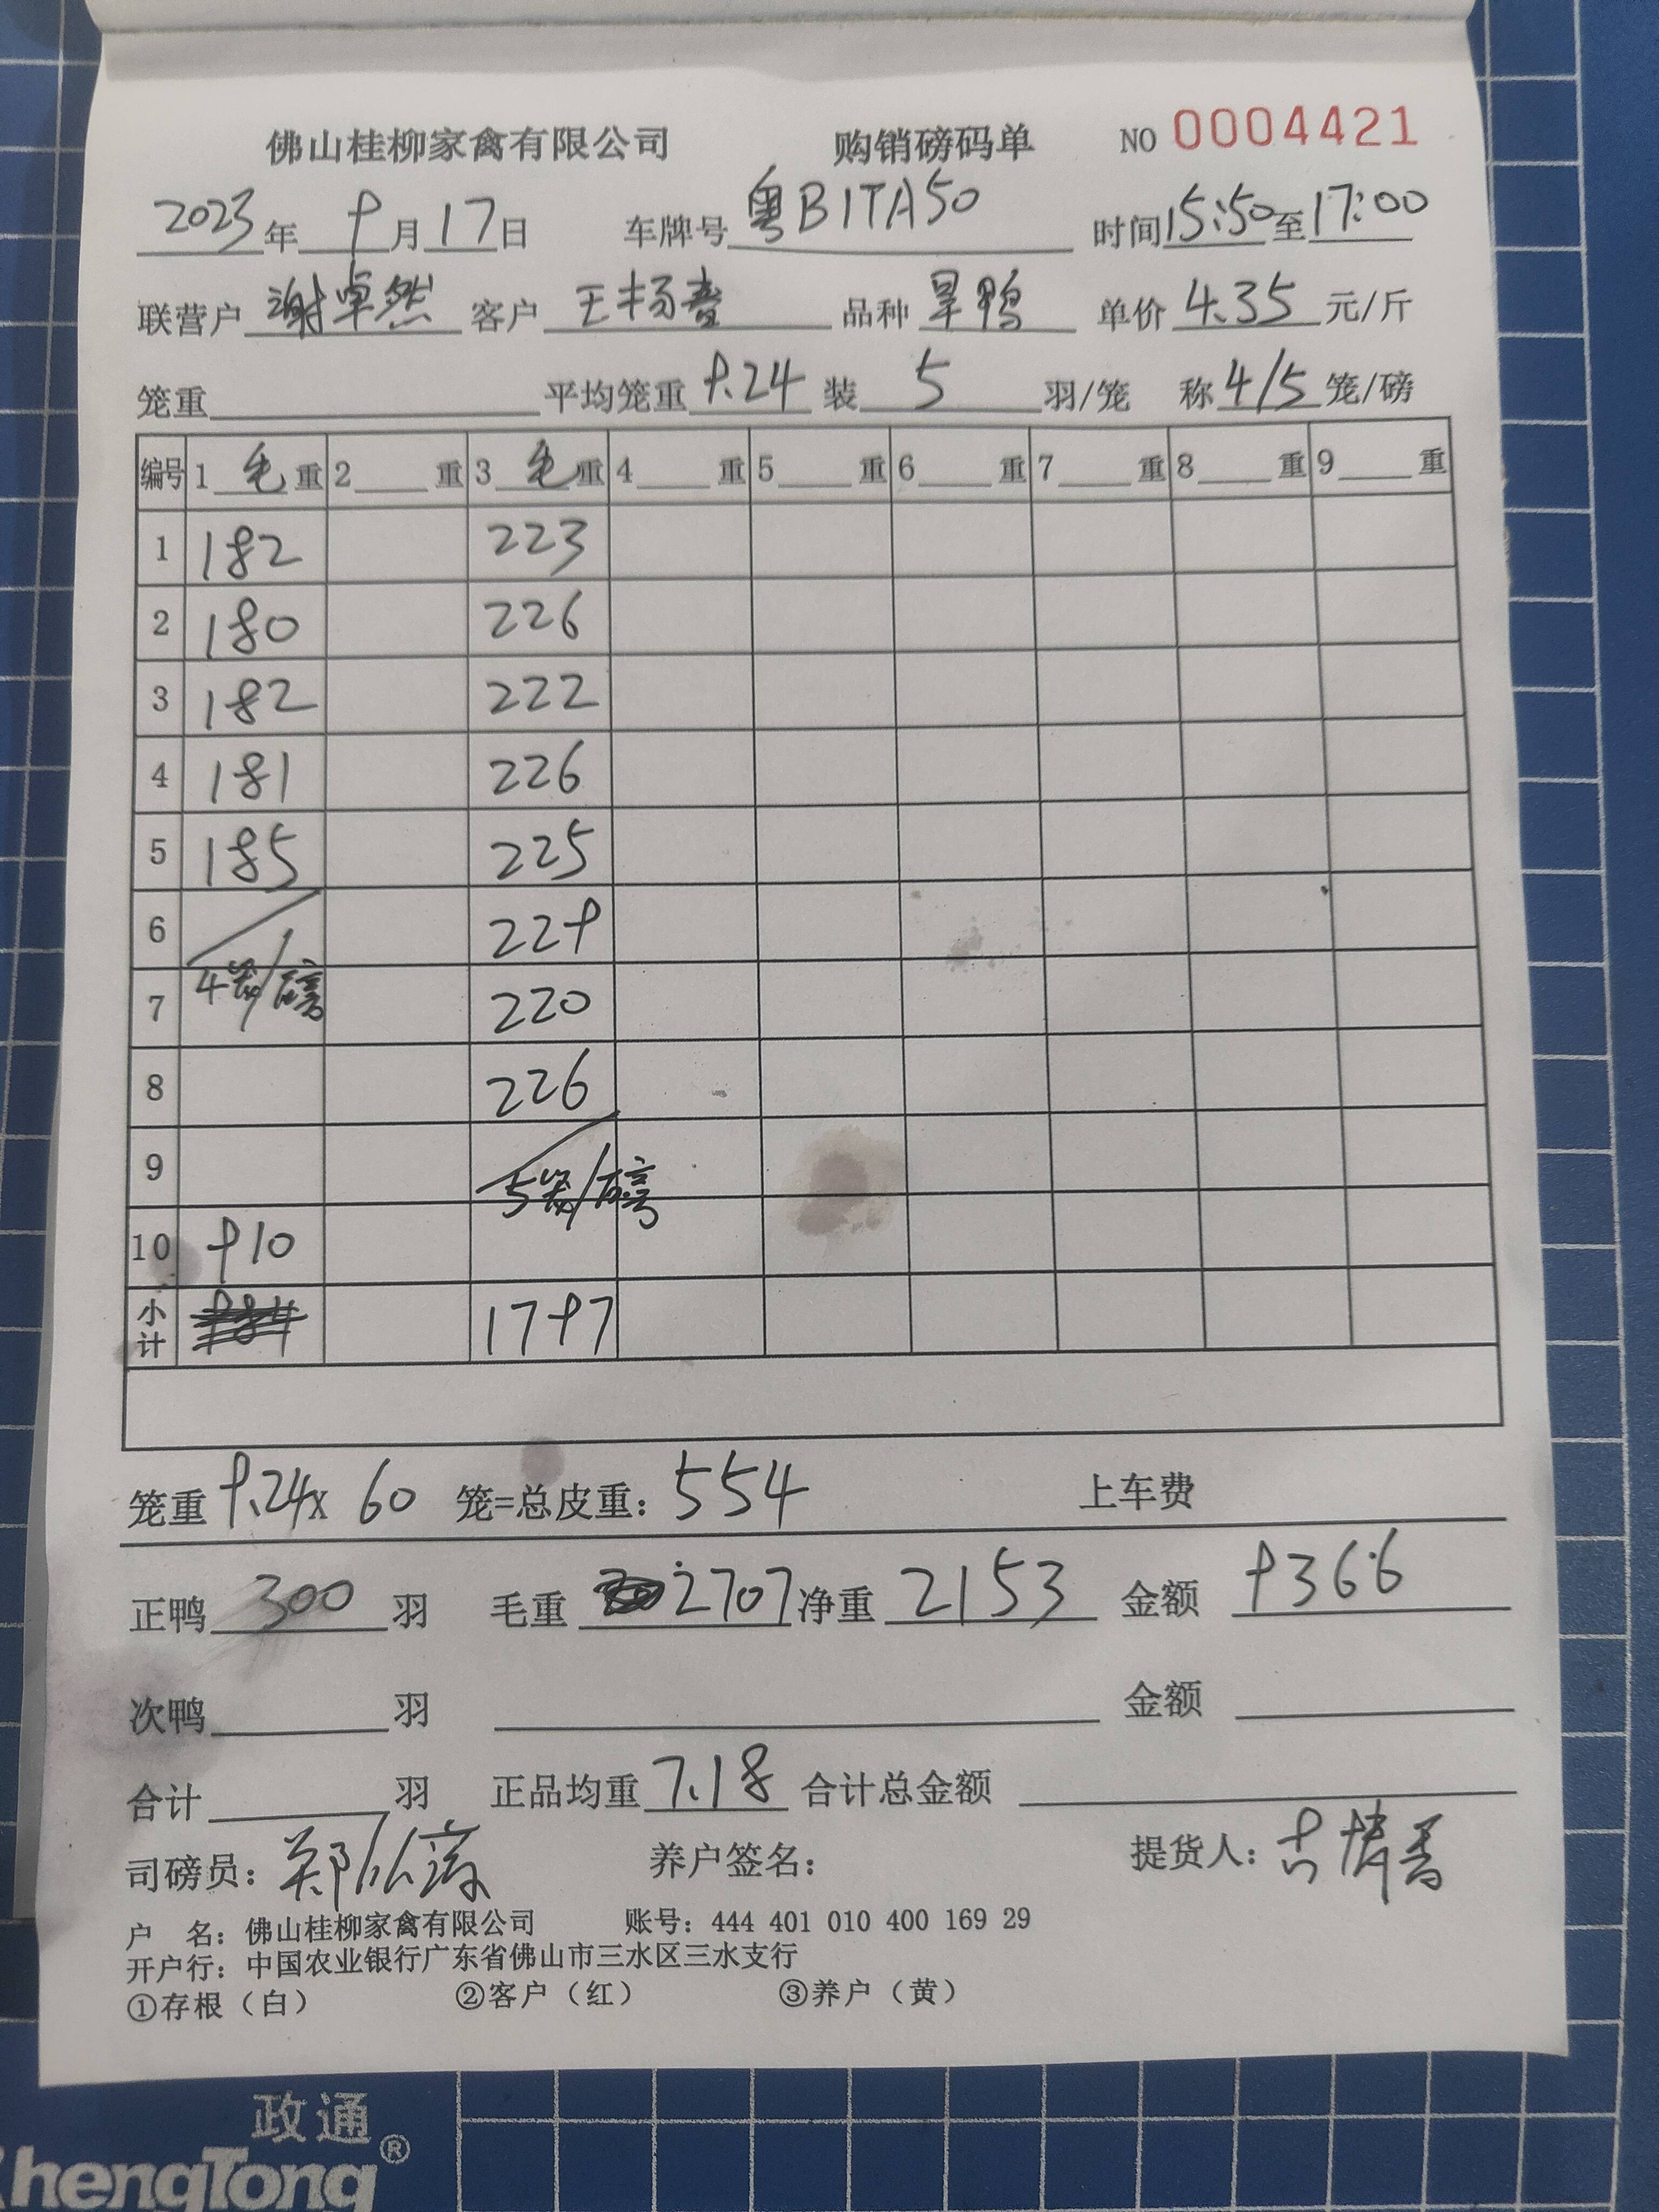 佛山桂柳家禽有限公司 购销磅码单 NO 0004421
2023年 9月17日 车牌号 粤B1TA50 时间15:50至17:00
联营户 谢卓然 客户 王扬 品种 旱鸭 单价 4.35 元/斤
笼重 平均笼重 9.24 装 5 羽/笼 称 4/5 笼/磅
编号 1 毛 重 2 重 3 毛 重 4 重 5 重 6 重 7 重 8 重 9 重
1 182 223
2 180 226
3 182 222
4 181 226
5 185 225
6 229
7 4笼/磅 220
8 226
9 5笼/磅
10 910
小计 1797
笼重 9.24x 60 笼=总皮重: 554 上车费
正鸭 300 羽 毛重 2707 净重 2153 金额 9366
次鸭 羽 金额
合计 羽 正品均重 7.18 合计总金额
司磅员: 郑 养户签名: 提货人: 古
户 名: 佛山桂柳家禽有限公司 账号: 444 401 010 400 169 29
开户行: 中国农业银行广东省佛山市三水区三水支行
①存根（白） ②客户（红） ③养户（黄）
政通
hengTong®